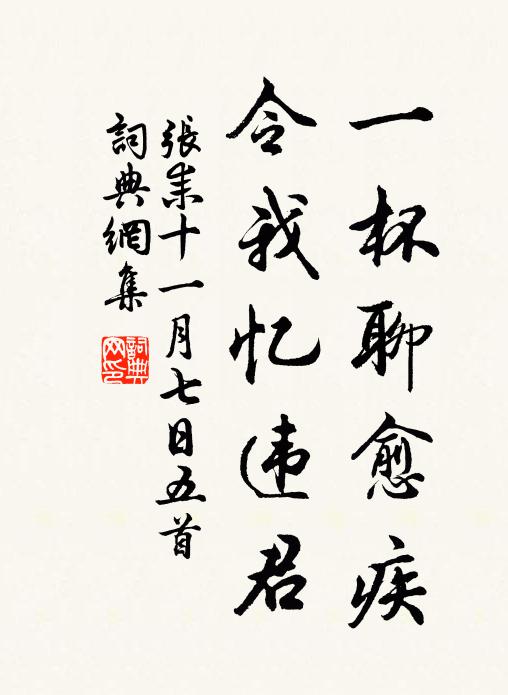 一杯聊愈疾
令我忆违君
張耒十一月七日五首
詞典網集
詞典網印